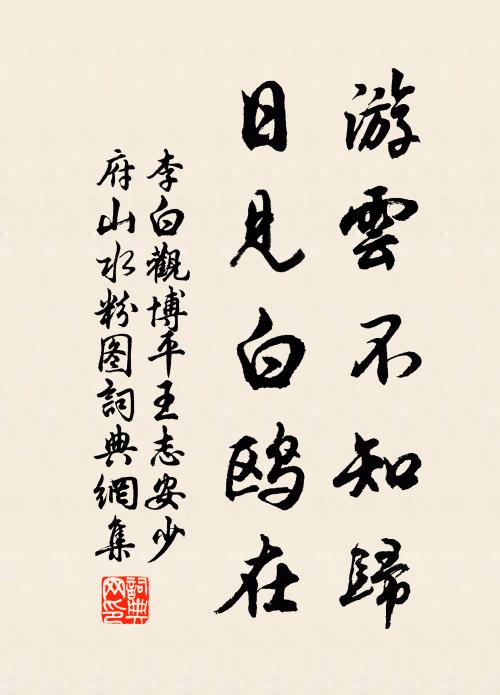 游雲不知歸
日見白鸥在
李白觀博平王志安少
府山水粉图詞典網集
詞典
网印